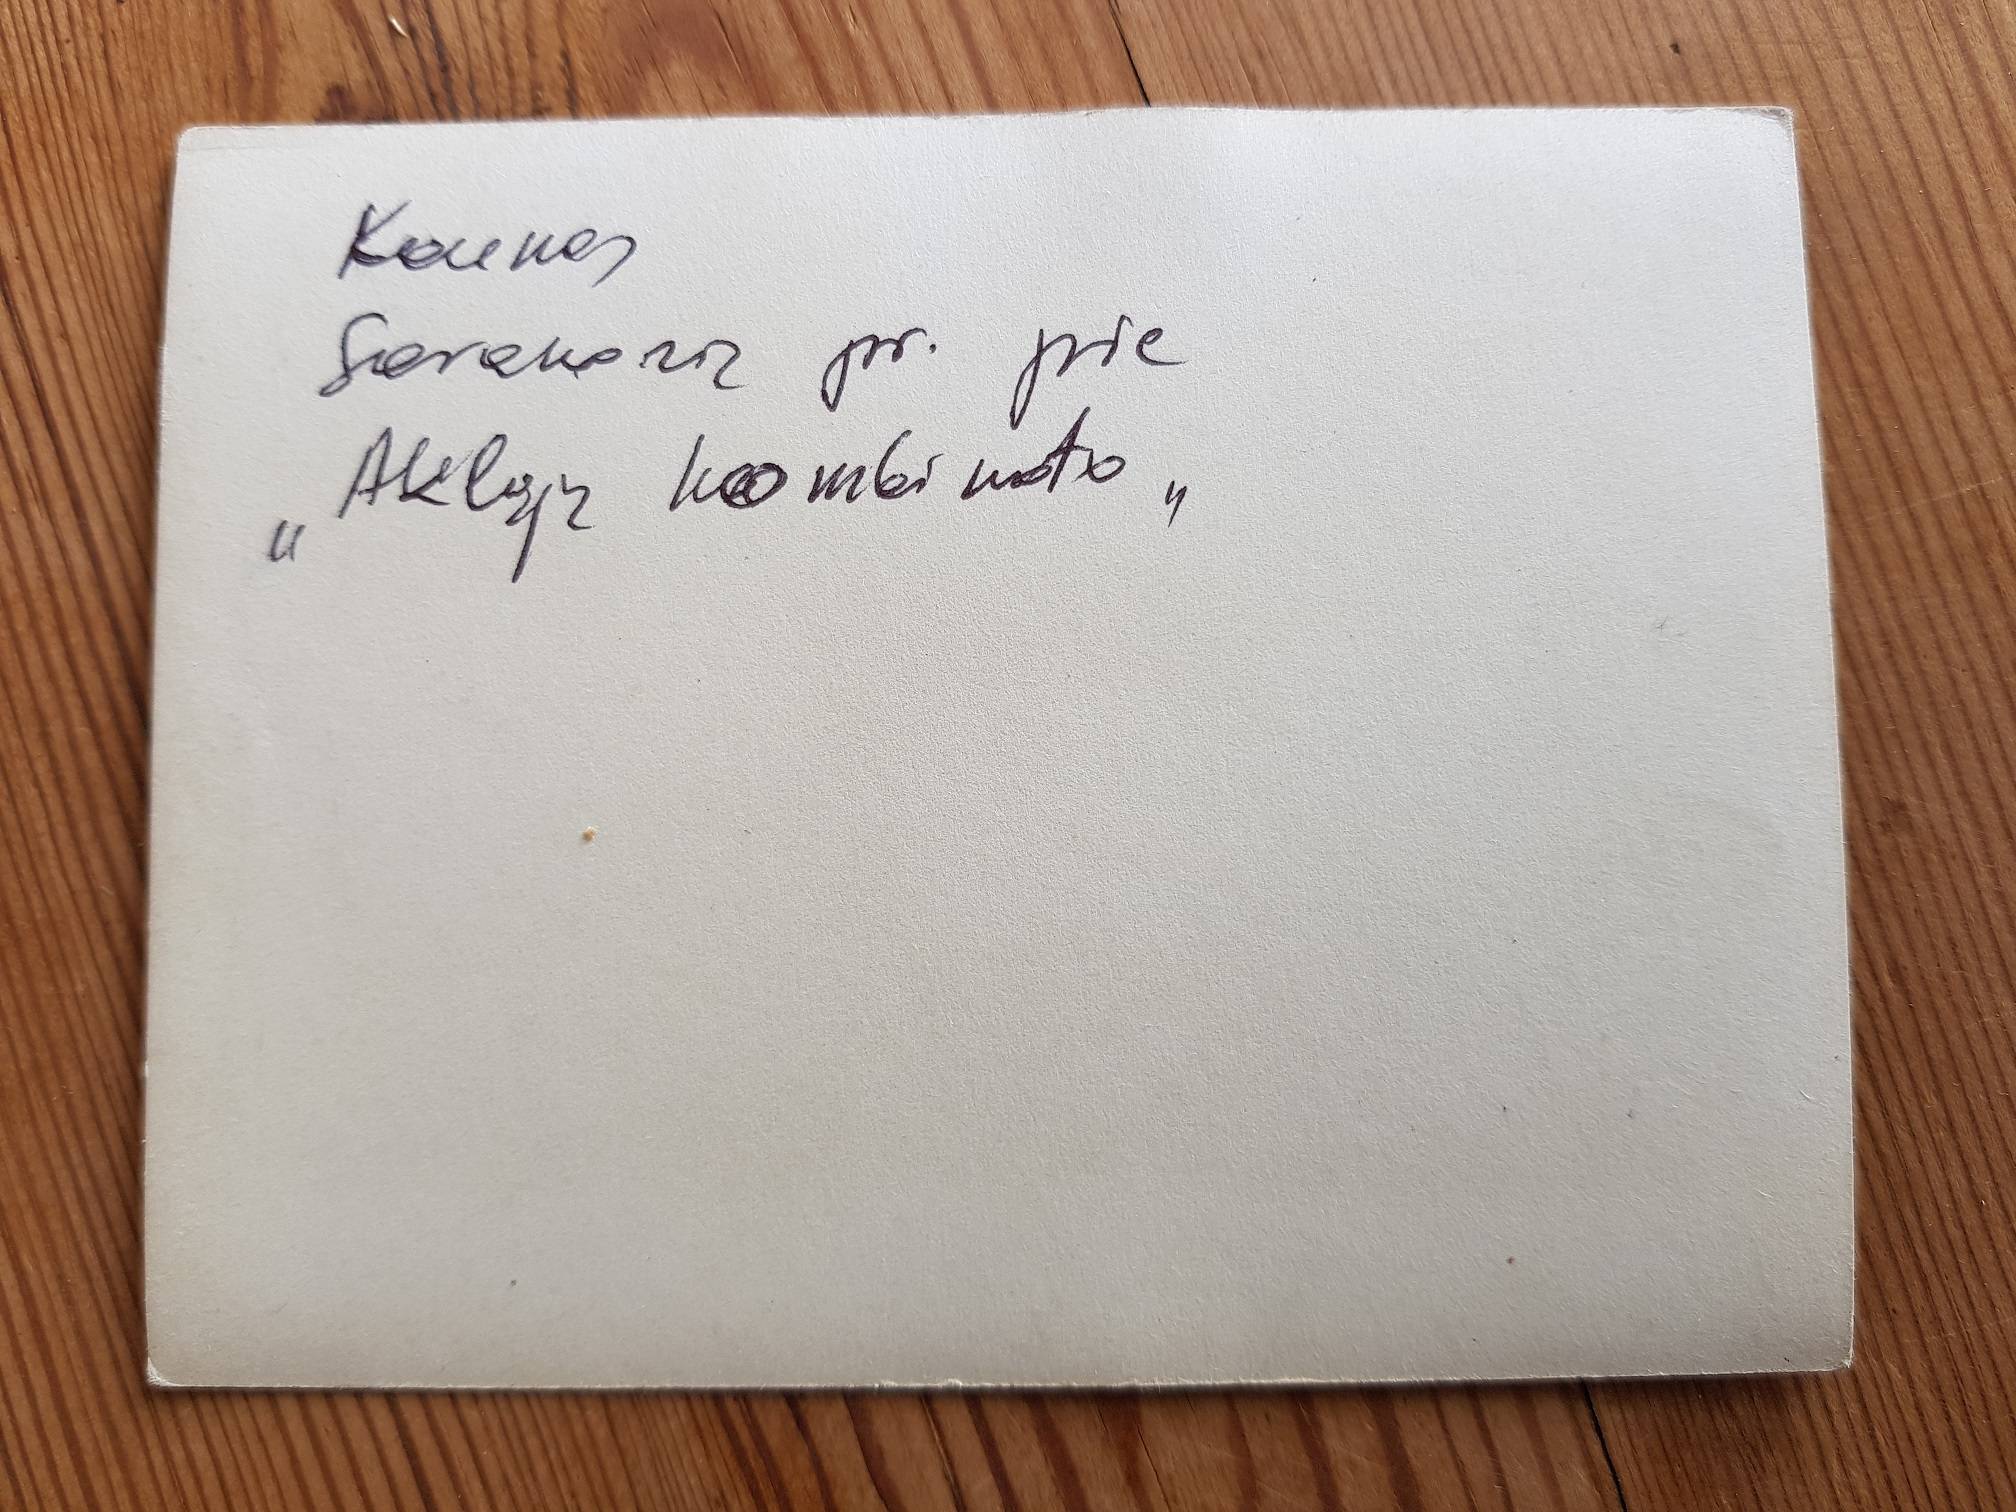 Kaunas
Savanorių pr. prie
„Aklųjų kombinato„